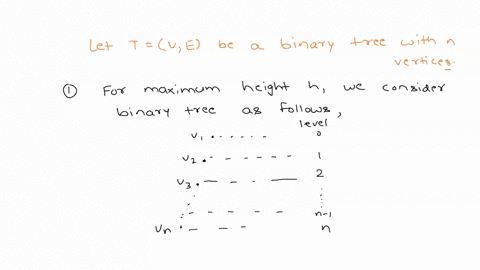 Let T = (V, E) be a binary tree with n
vertices.
① For maximum height h, we consider
binary tree as follows,
level
v1 0
v2 1
v3 2
n-1
vn n